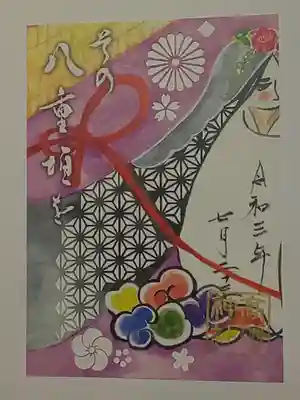 その
八重垣を
令和三年
七月二三